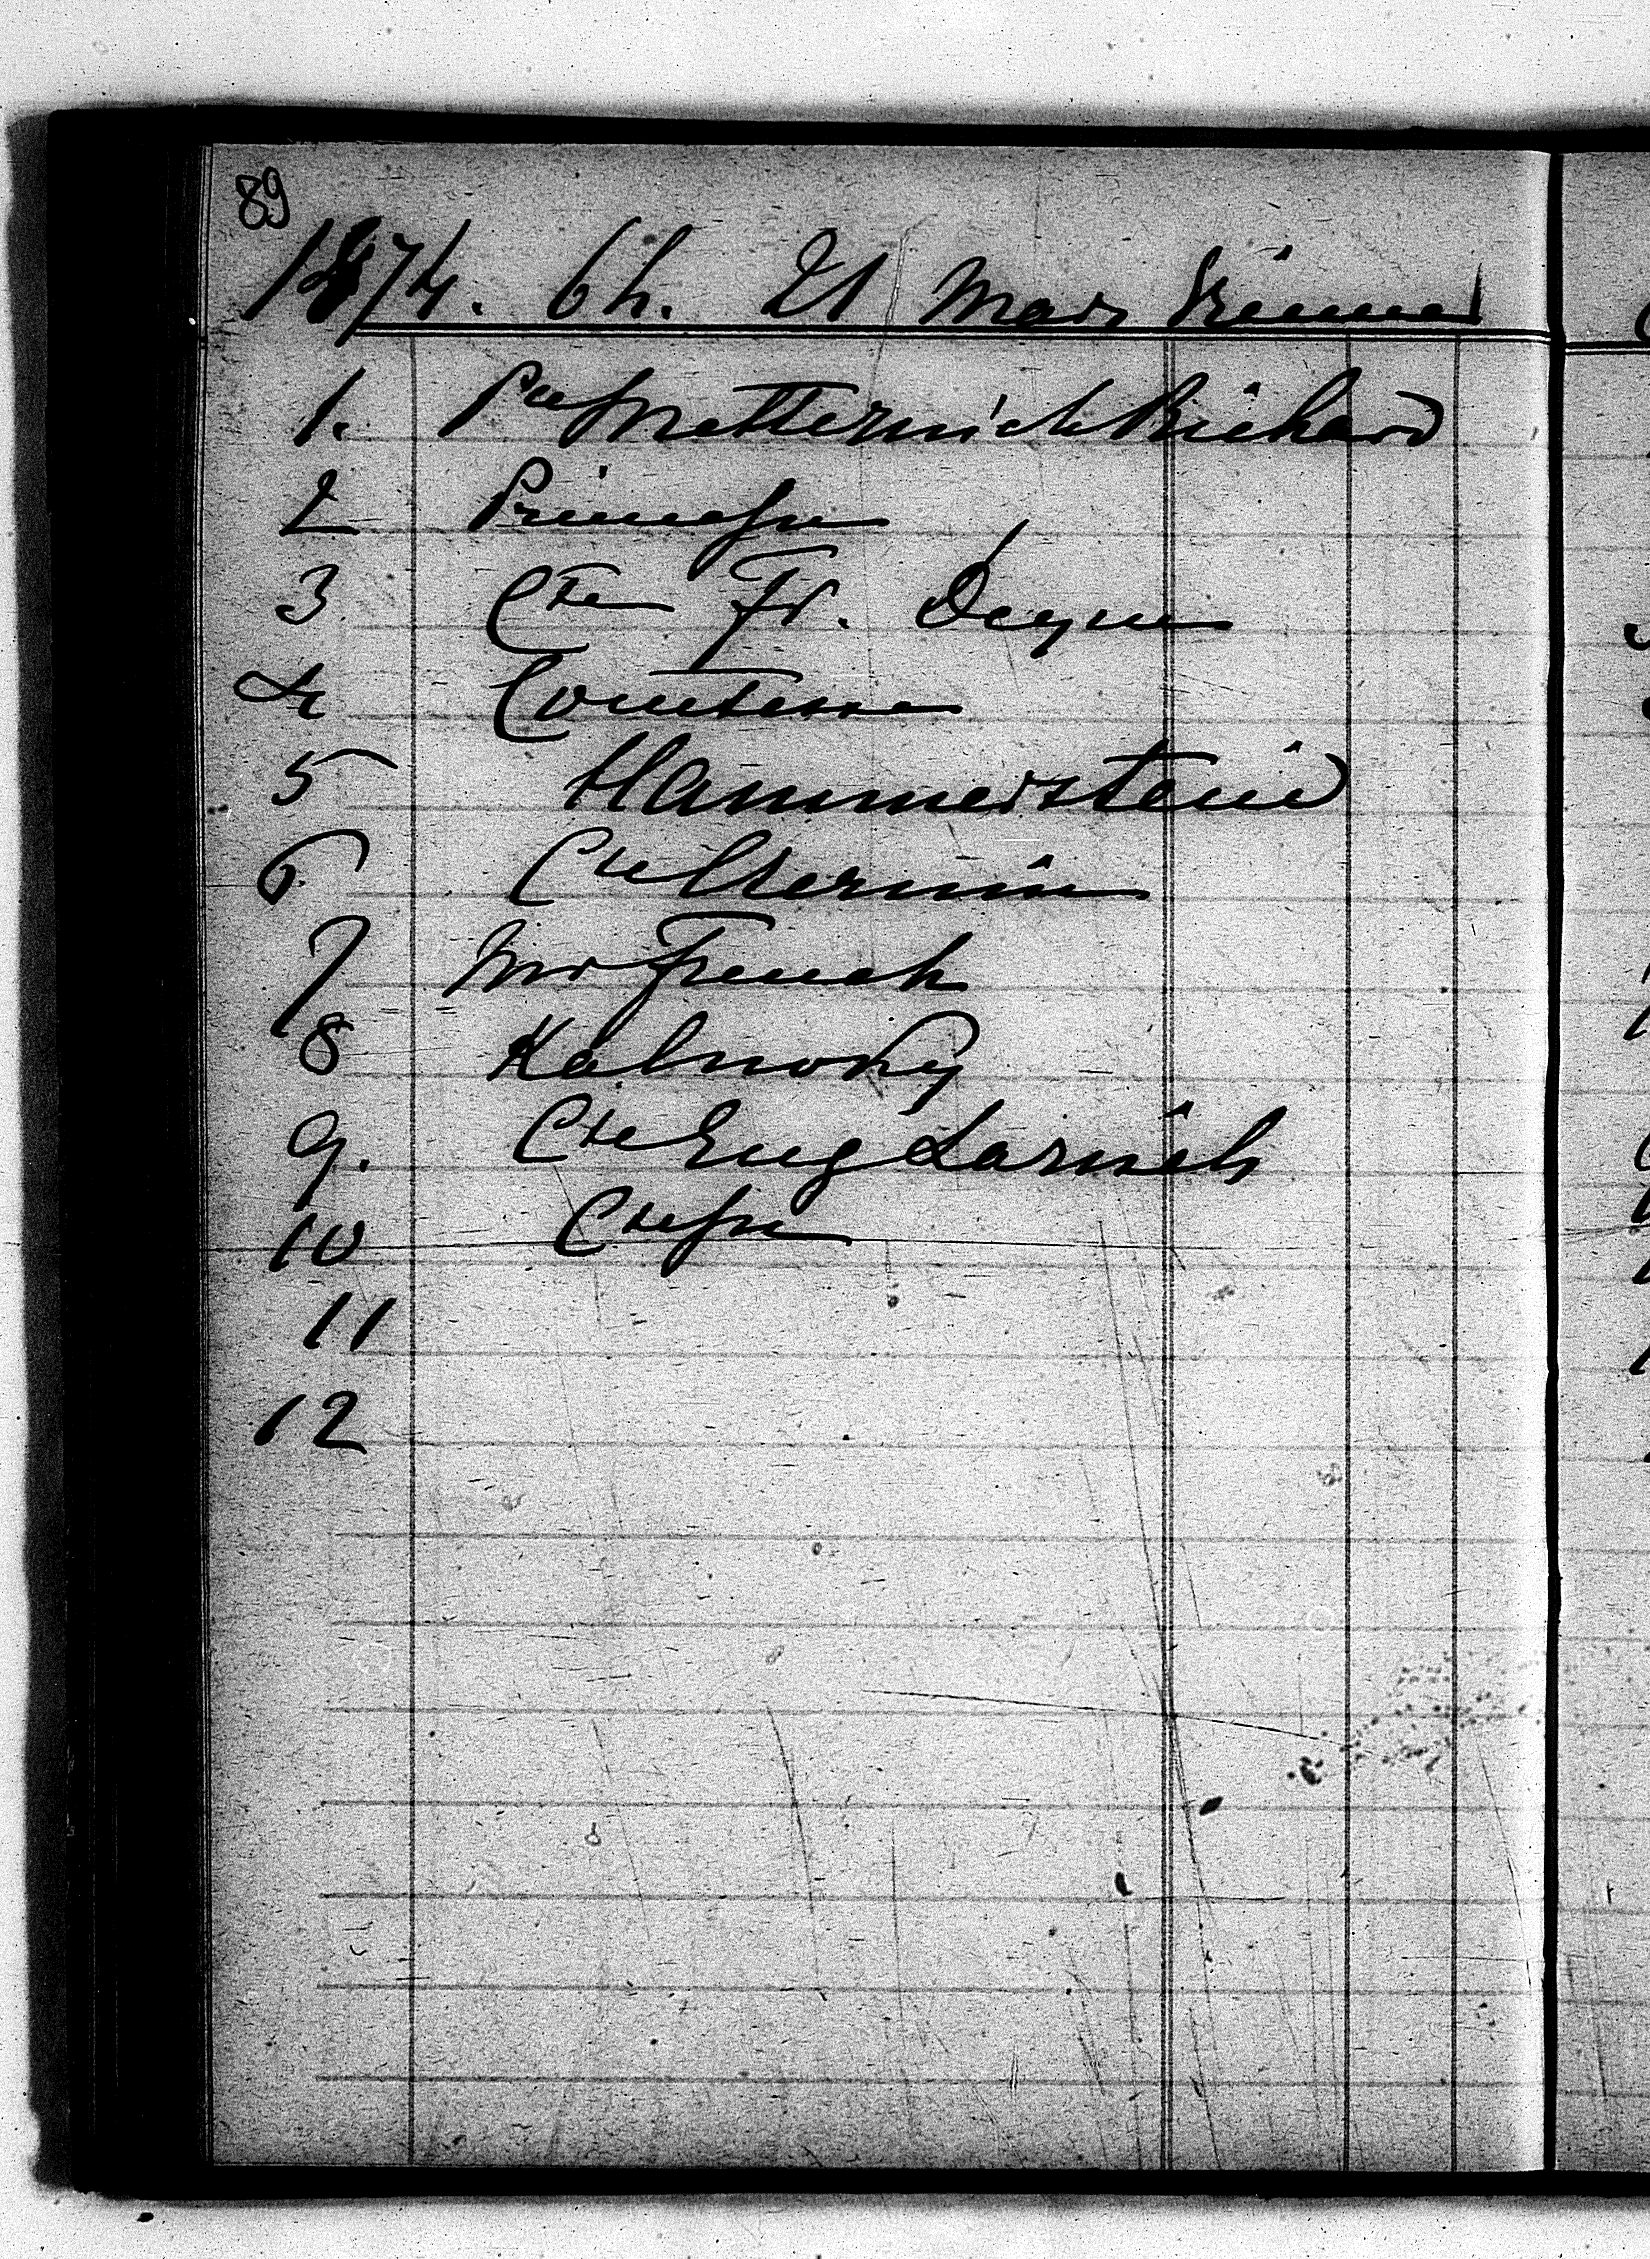 89
1874. 6h. 21 Mars Vienne
1. Pce Metternich Richard
2 Princesse
3 Cte Fr. Deym
4 Comtesse
5 Hammerstein
6 Cte Czernin
7 Mr French
8 Kalnoky
9. Cte Eug Larisch
10 Ctesse
11
12